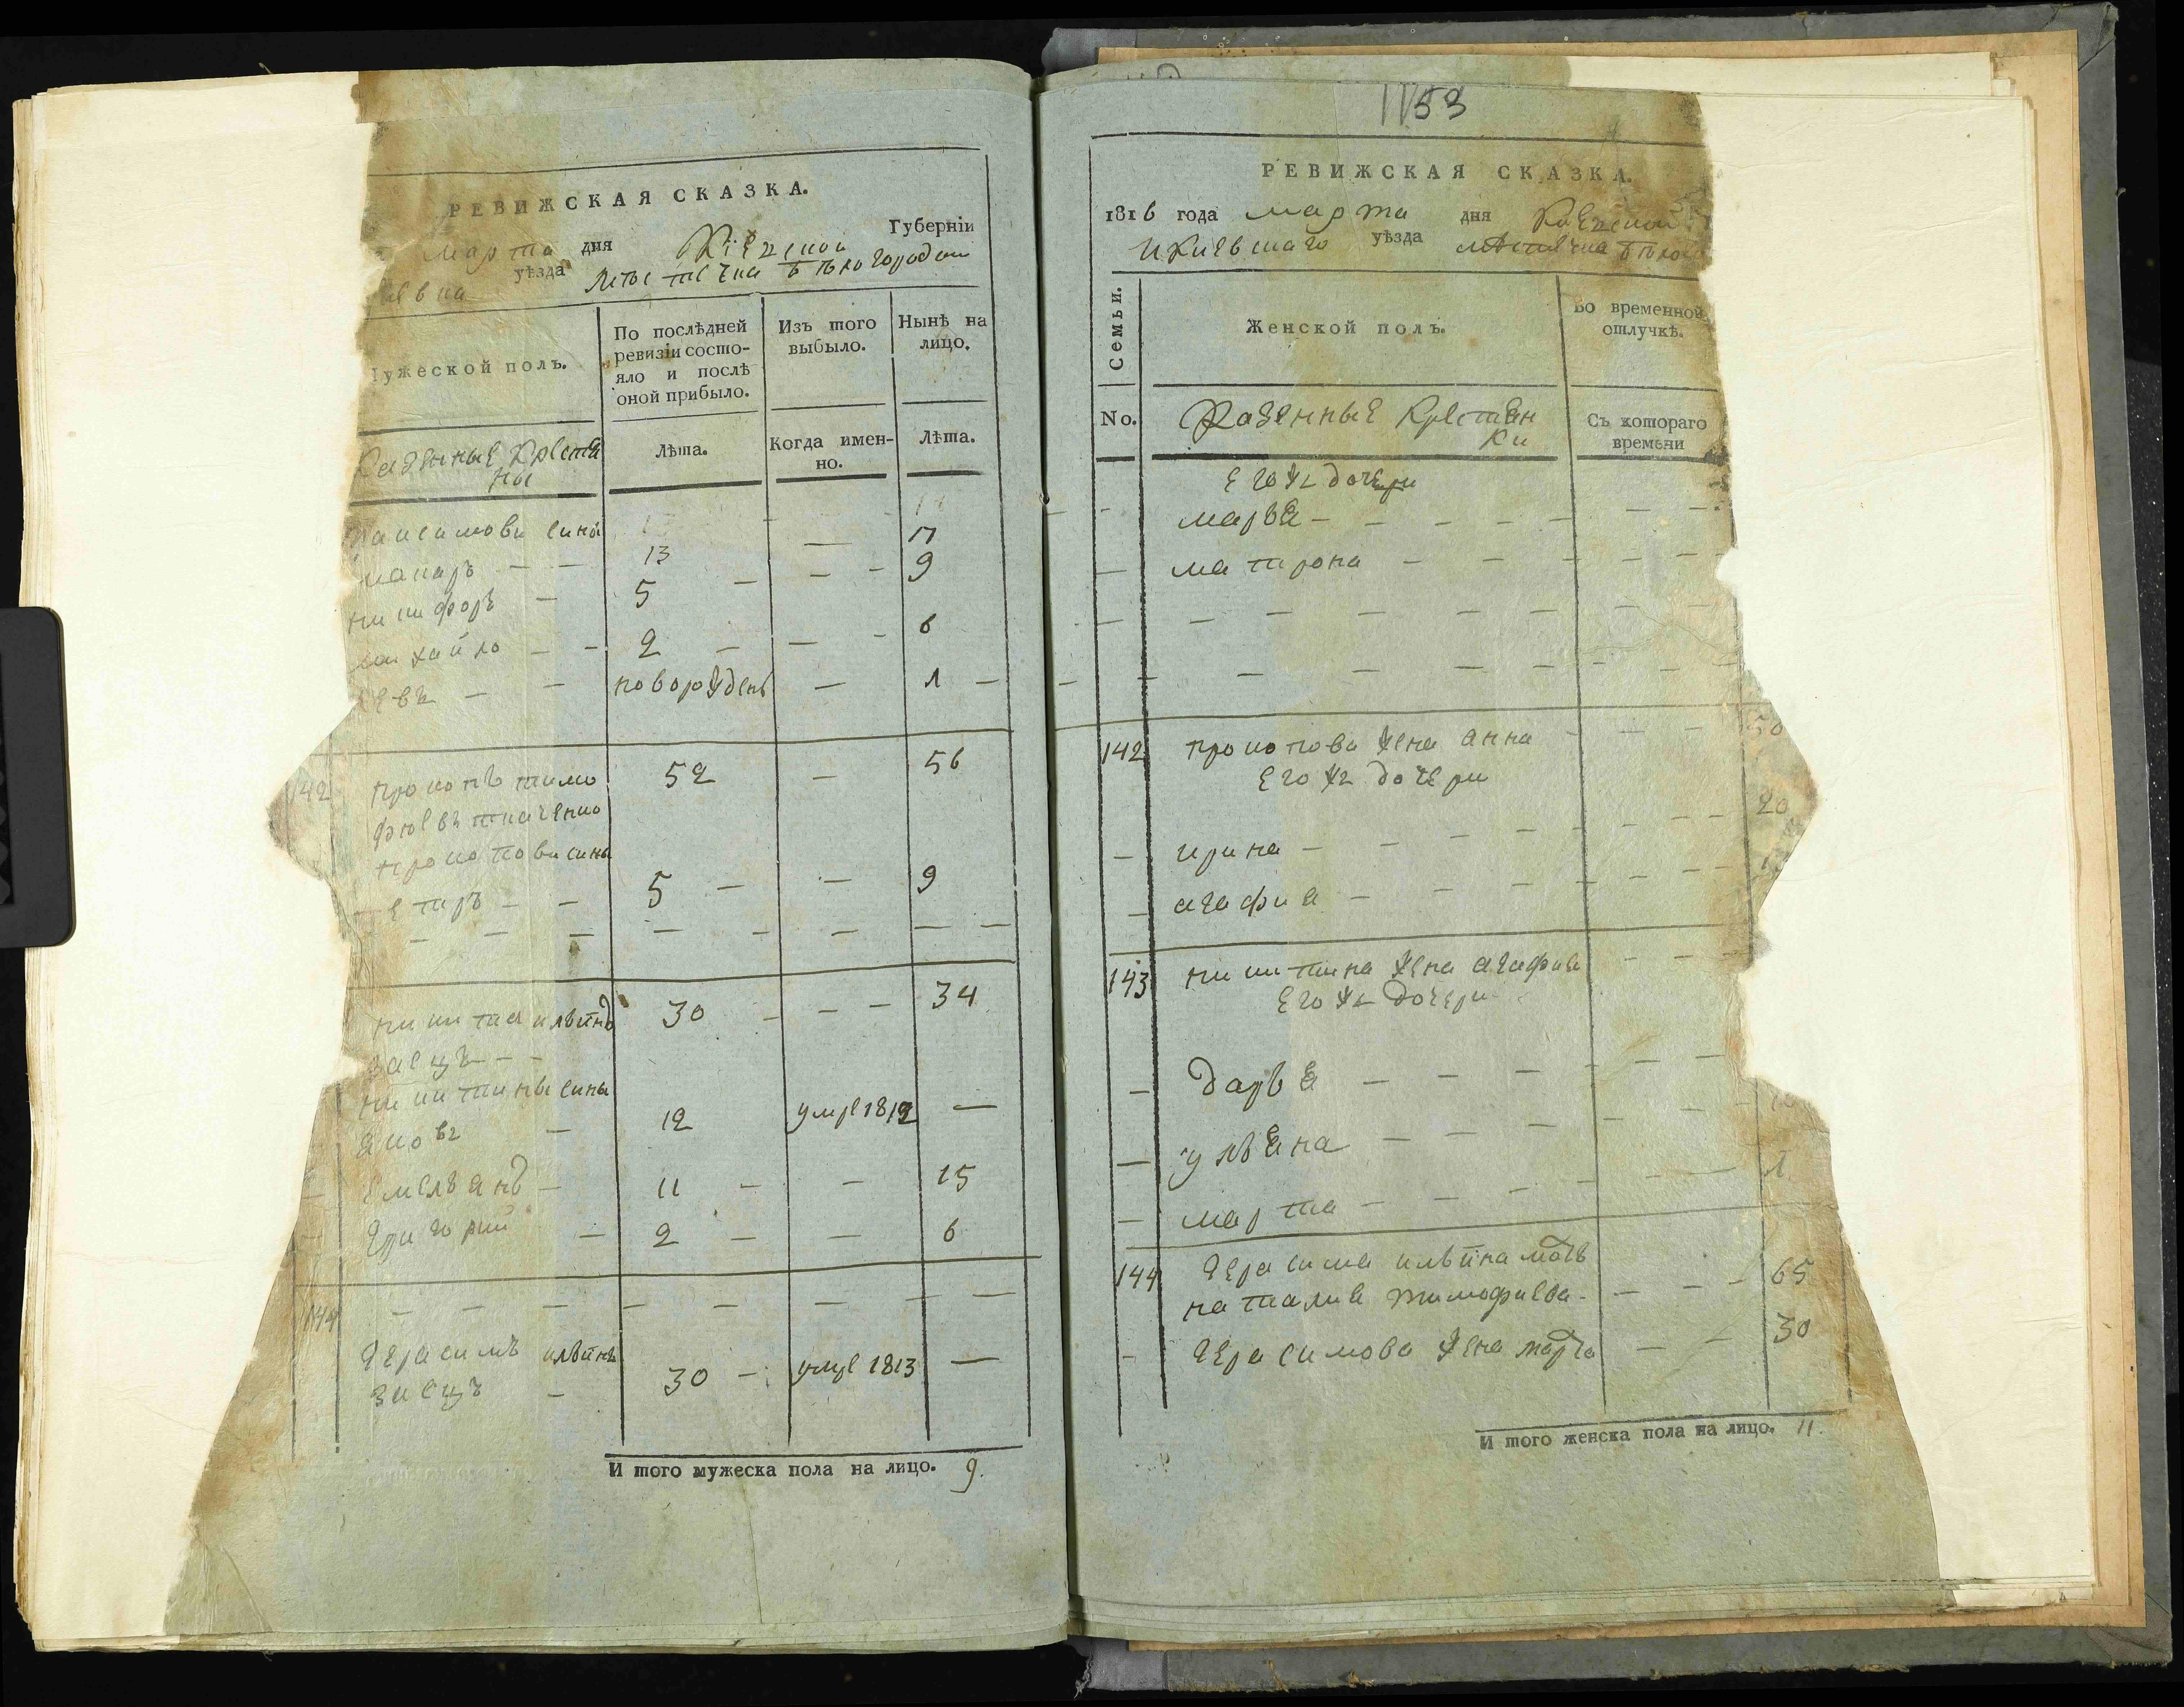 РЕВИЖСКАЯ СКАЗКА.
марта дня Кіевской Губерніи
уѣзда местечка белогородки
ужеской полъ.
По послѣдней ревизіи состо-
яло и послѣ
оной прибыло.
Изъ того
выбыло.
Нынѣ на
лицо.
Казенные крестя
ны
Лѣта.
Когда имен-
но.
Лѣта.
сины
макаръ — — 13 — 17
никифоръ — 5 — — — 9
михайло — — 2 — — — 6
новорожденъ — 1 —
142 прокопъ тимо 52 — 56
фіевъ ткаченко
прокопови сины
етръ — — 5 — — 9
— — — — — — — —
никита илъинъ 30 — — — 34
заецъ — —
никитины сины
яковъ — 12 умре 1812 —
емелъянъ — 11 — — 15
григорий — 2 — — 6
144 — — — — — — — —
герасимъ илъинъ
заецъ — 30 — умре 1813 —
И того мужеска пола на лицо. 9.
53
РЕВИЖСКАЯ СКАЗКА.
1816 года марта дня Киевской
Киевскаго уѣзда местечка бело
Семьи.
Женской полъ.
Во временной
отлучкѣ.
No.
Казенные крестян
ки
Съ котораго
времени
его жъ дочери
маръя — — — — —
матрона — — — —
142 прокопова жена анна 50
его жъ дочери
— ирина — — 20
— агафия —
143 никитина жена агафия — — —
его жъ дочери
— даръя — — —
— улъяна — — —
— марта — — — 1
144 герасима илъина мать
наталия тимофиева — — — — 65
— герасимова жена марта — — 30
И того женска пола на лицо. 11.